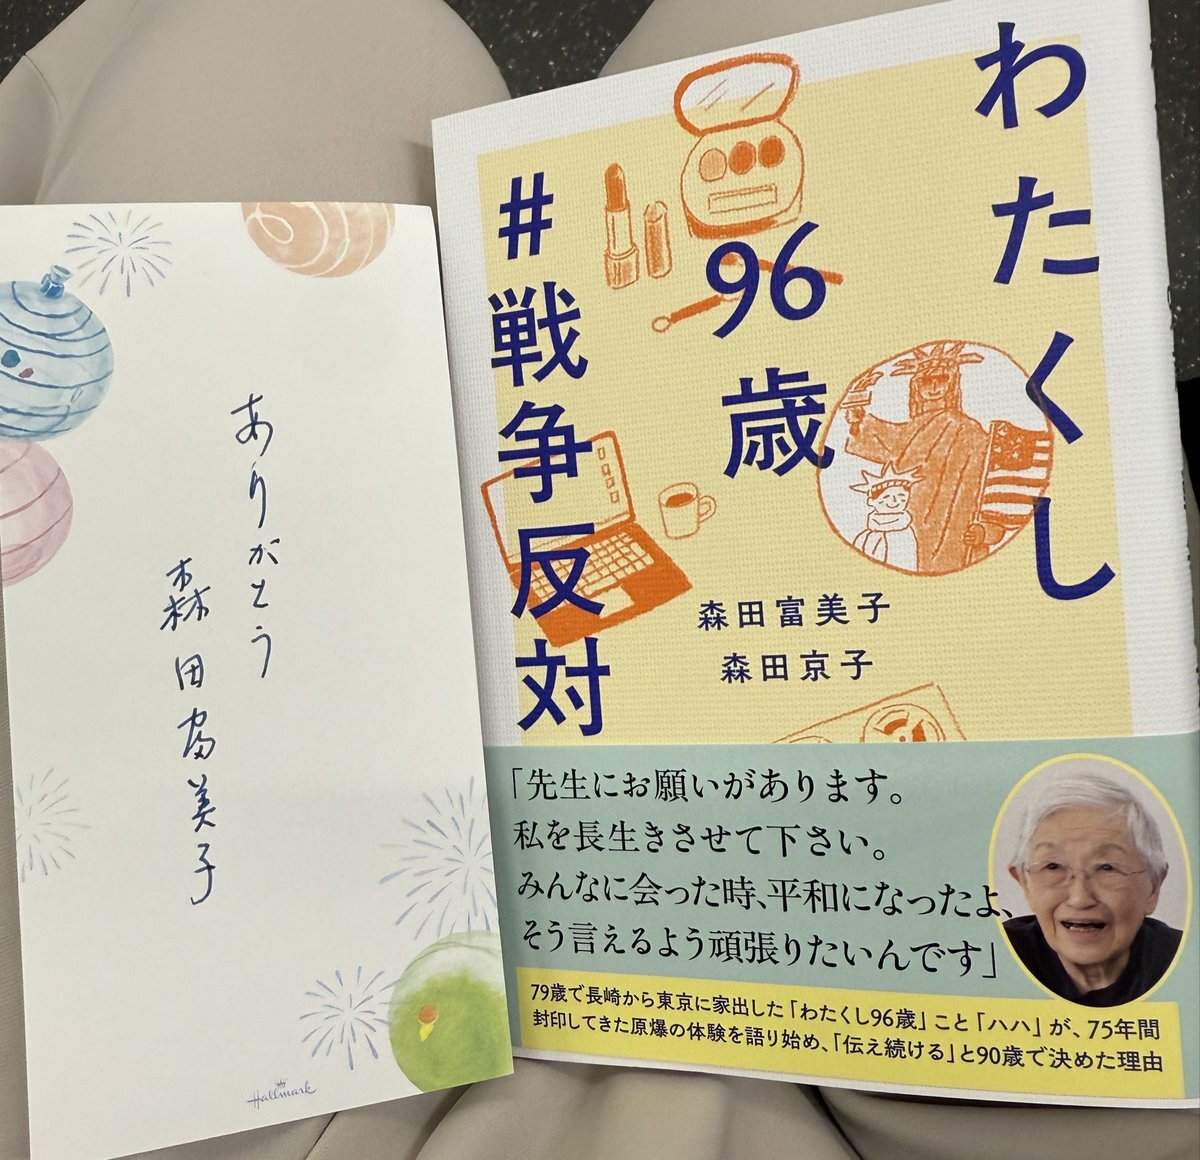 ありがとう
森田富美子
Hallmark
わたくし
96歳
#戦争反対
森田富美子
森田京子
「先生にお願いがあります。
私を長生きさせて下さい。
みんなに会った時、平和になったよ、
そう言えるよう頑張りたいんです」
79歳で長崎から東京に家出した「わたくし96歳」こと「ハハ」が、75年間
封印してきた原爆の体験を語り始め、「伝え続ける」と90歳で決めた理由